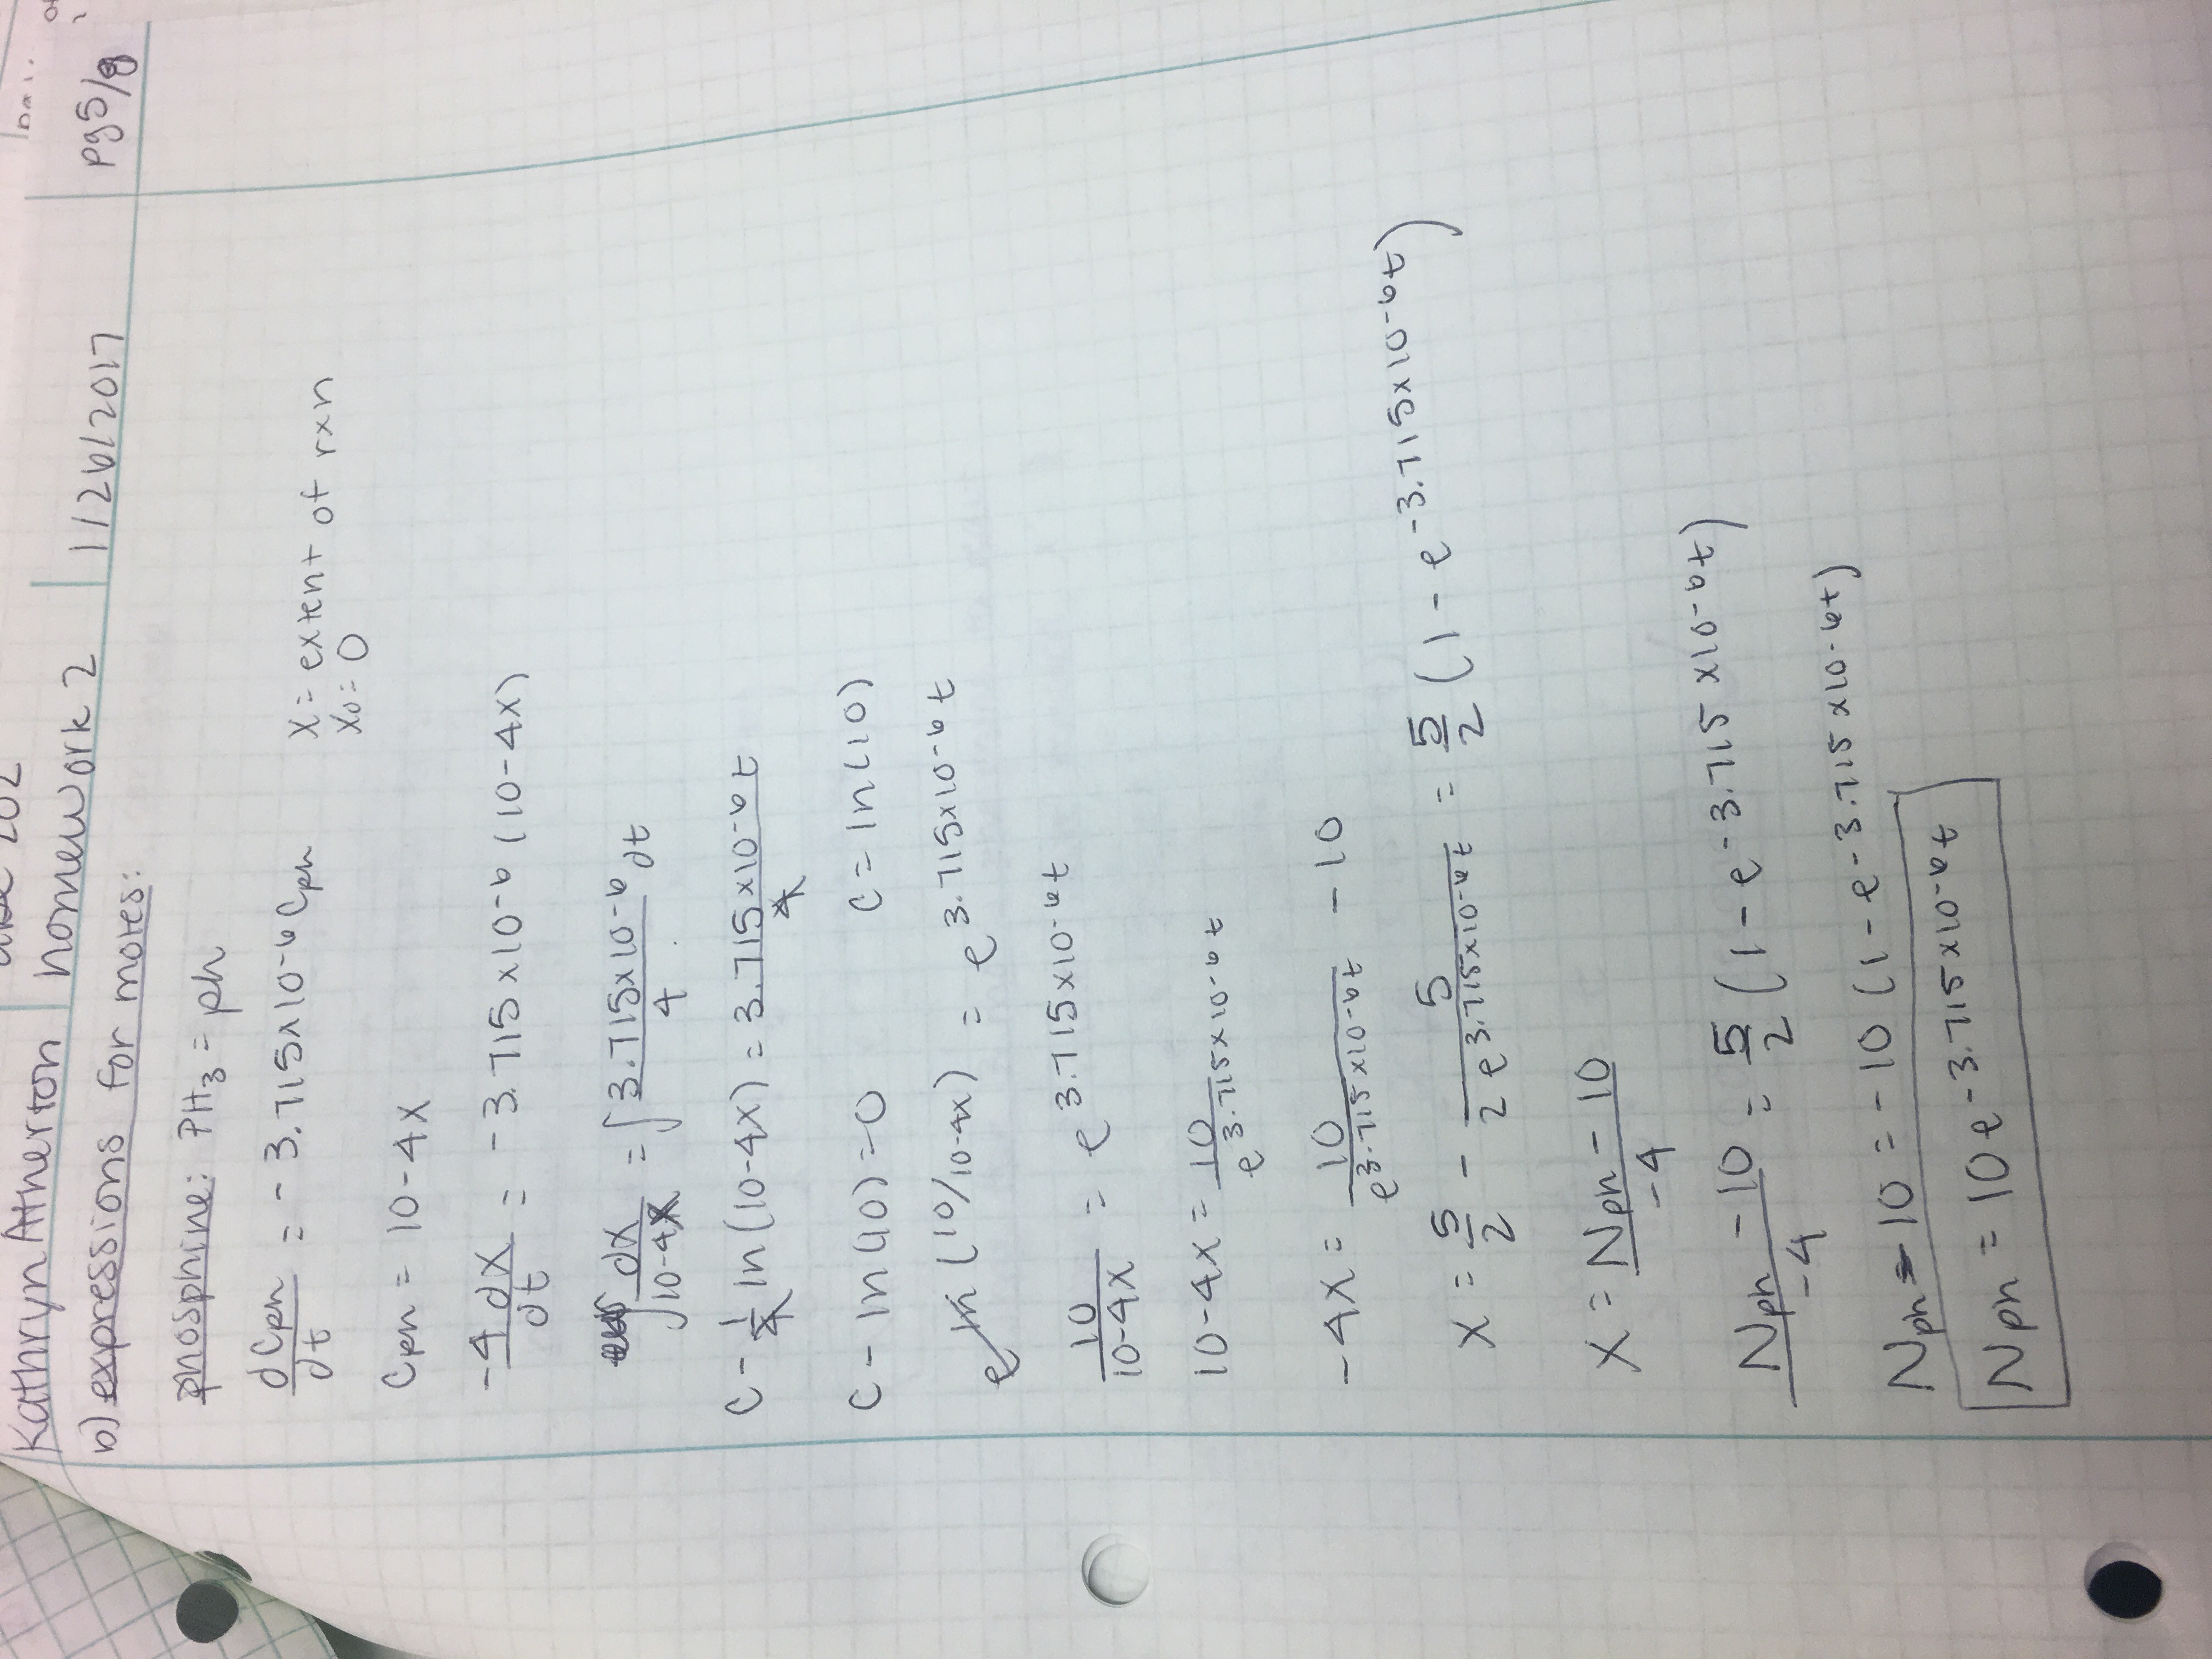 Kathryn Atherton
202
homework 2
1/26/2017
pg5/8
b) expressions for moles:
phosphine: PH₃ = ph
dCph/dt = -3.715×10⁻⁶ Cph
x = extent of rxn
x₀ = 0
Cph = 10-4x
-4dx/dt = -3.715×10⁻⁶ (10-4x)
∫ dx/10-4x = ∫ 3.715×10⁻⁶/4 dt
C - 1/4 ln(10-4x) = 3.715×10⁻⁶t/4
C - ln(10) = 0
C = ln(10)
e^ln(10/10-4x) = e^3.715×10⁻⁶t
10/10-4x = e^3.715×10⁻⁶t
10-4x = 10/e^3.715×10⁻⁶t
-4x = 10/e^3.715×10⁻⁶t - 10
x = 5/2 - 5/2e^3.715×10⁻⁶t = 5/2 (1 - e^-3.715×10⁻⁶t)
x = Nph - 10/-4
Nph - 10/-4 = 5/2 (1 - e^-3.715×10⁻⁶t)
Nph - 10 = -10 (1 - e^-3.715×10⁻⁶t)
Nph = 10e^-3.715×10⁻⁶t